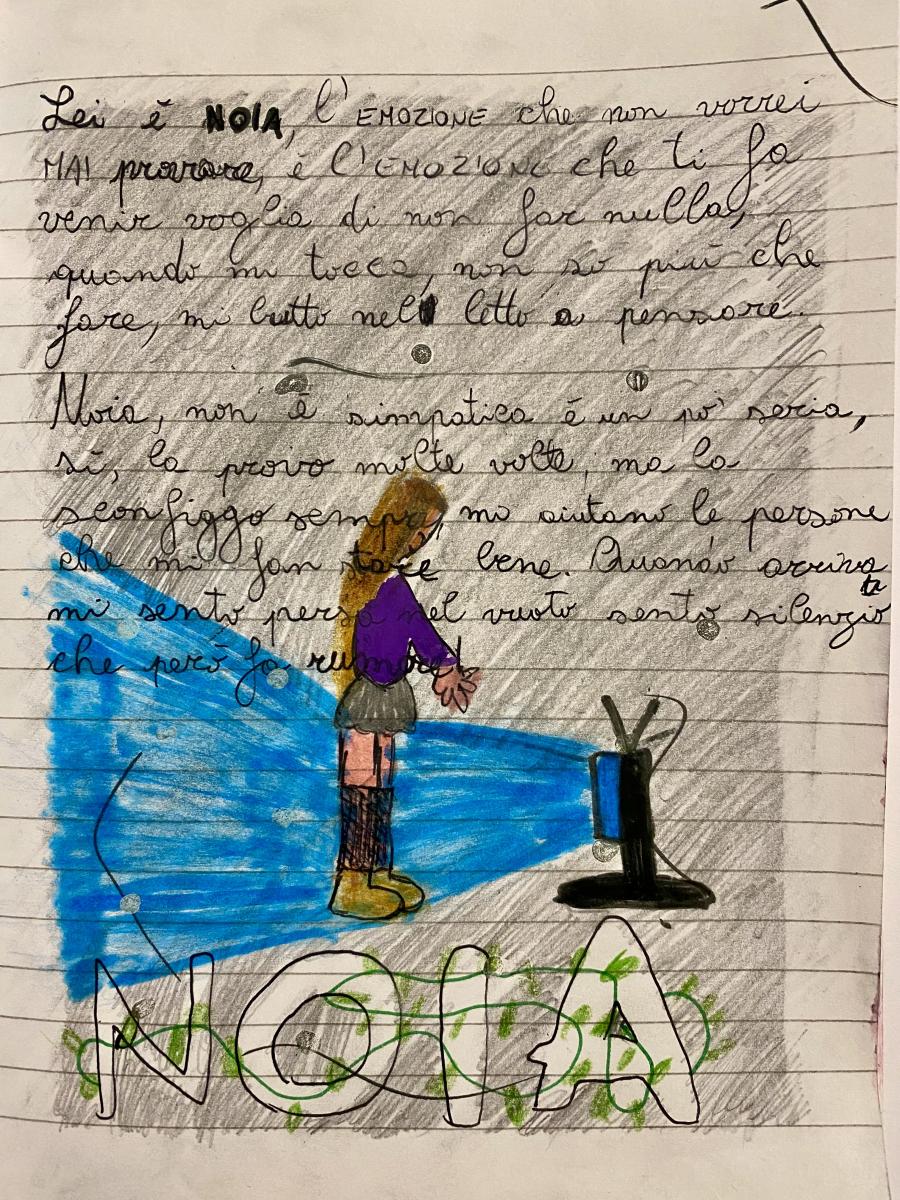 Lei è NOIA, l'EMOZIONE che non vorrei
MAI provare, è l'EMOZIONE che ti fa
venir voglia di non far nulla,
quando mi tocca, non so più che
fare, mi butto nel letto a pensare.
Noia, non è simpatica è un po' seria,
sì, la provo molte volte, ma la
sconfiggo sempre, mi aiutano le persone
che mi fan stare bene. Quando arriva
mi sento persa nel vuoto sento silenzio
che però fa rumore!
NOIA